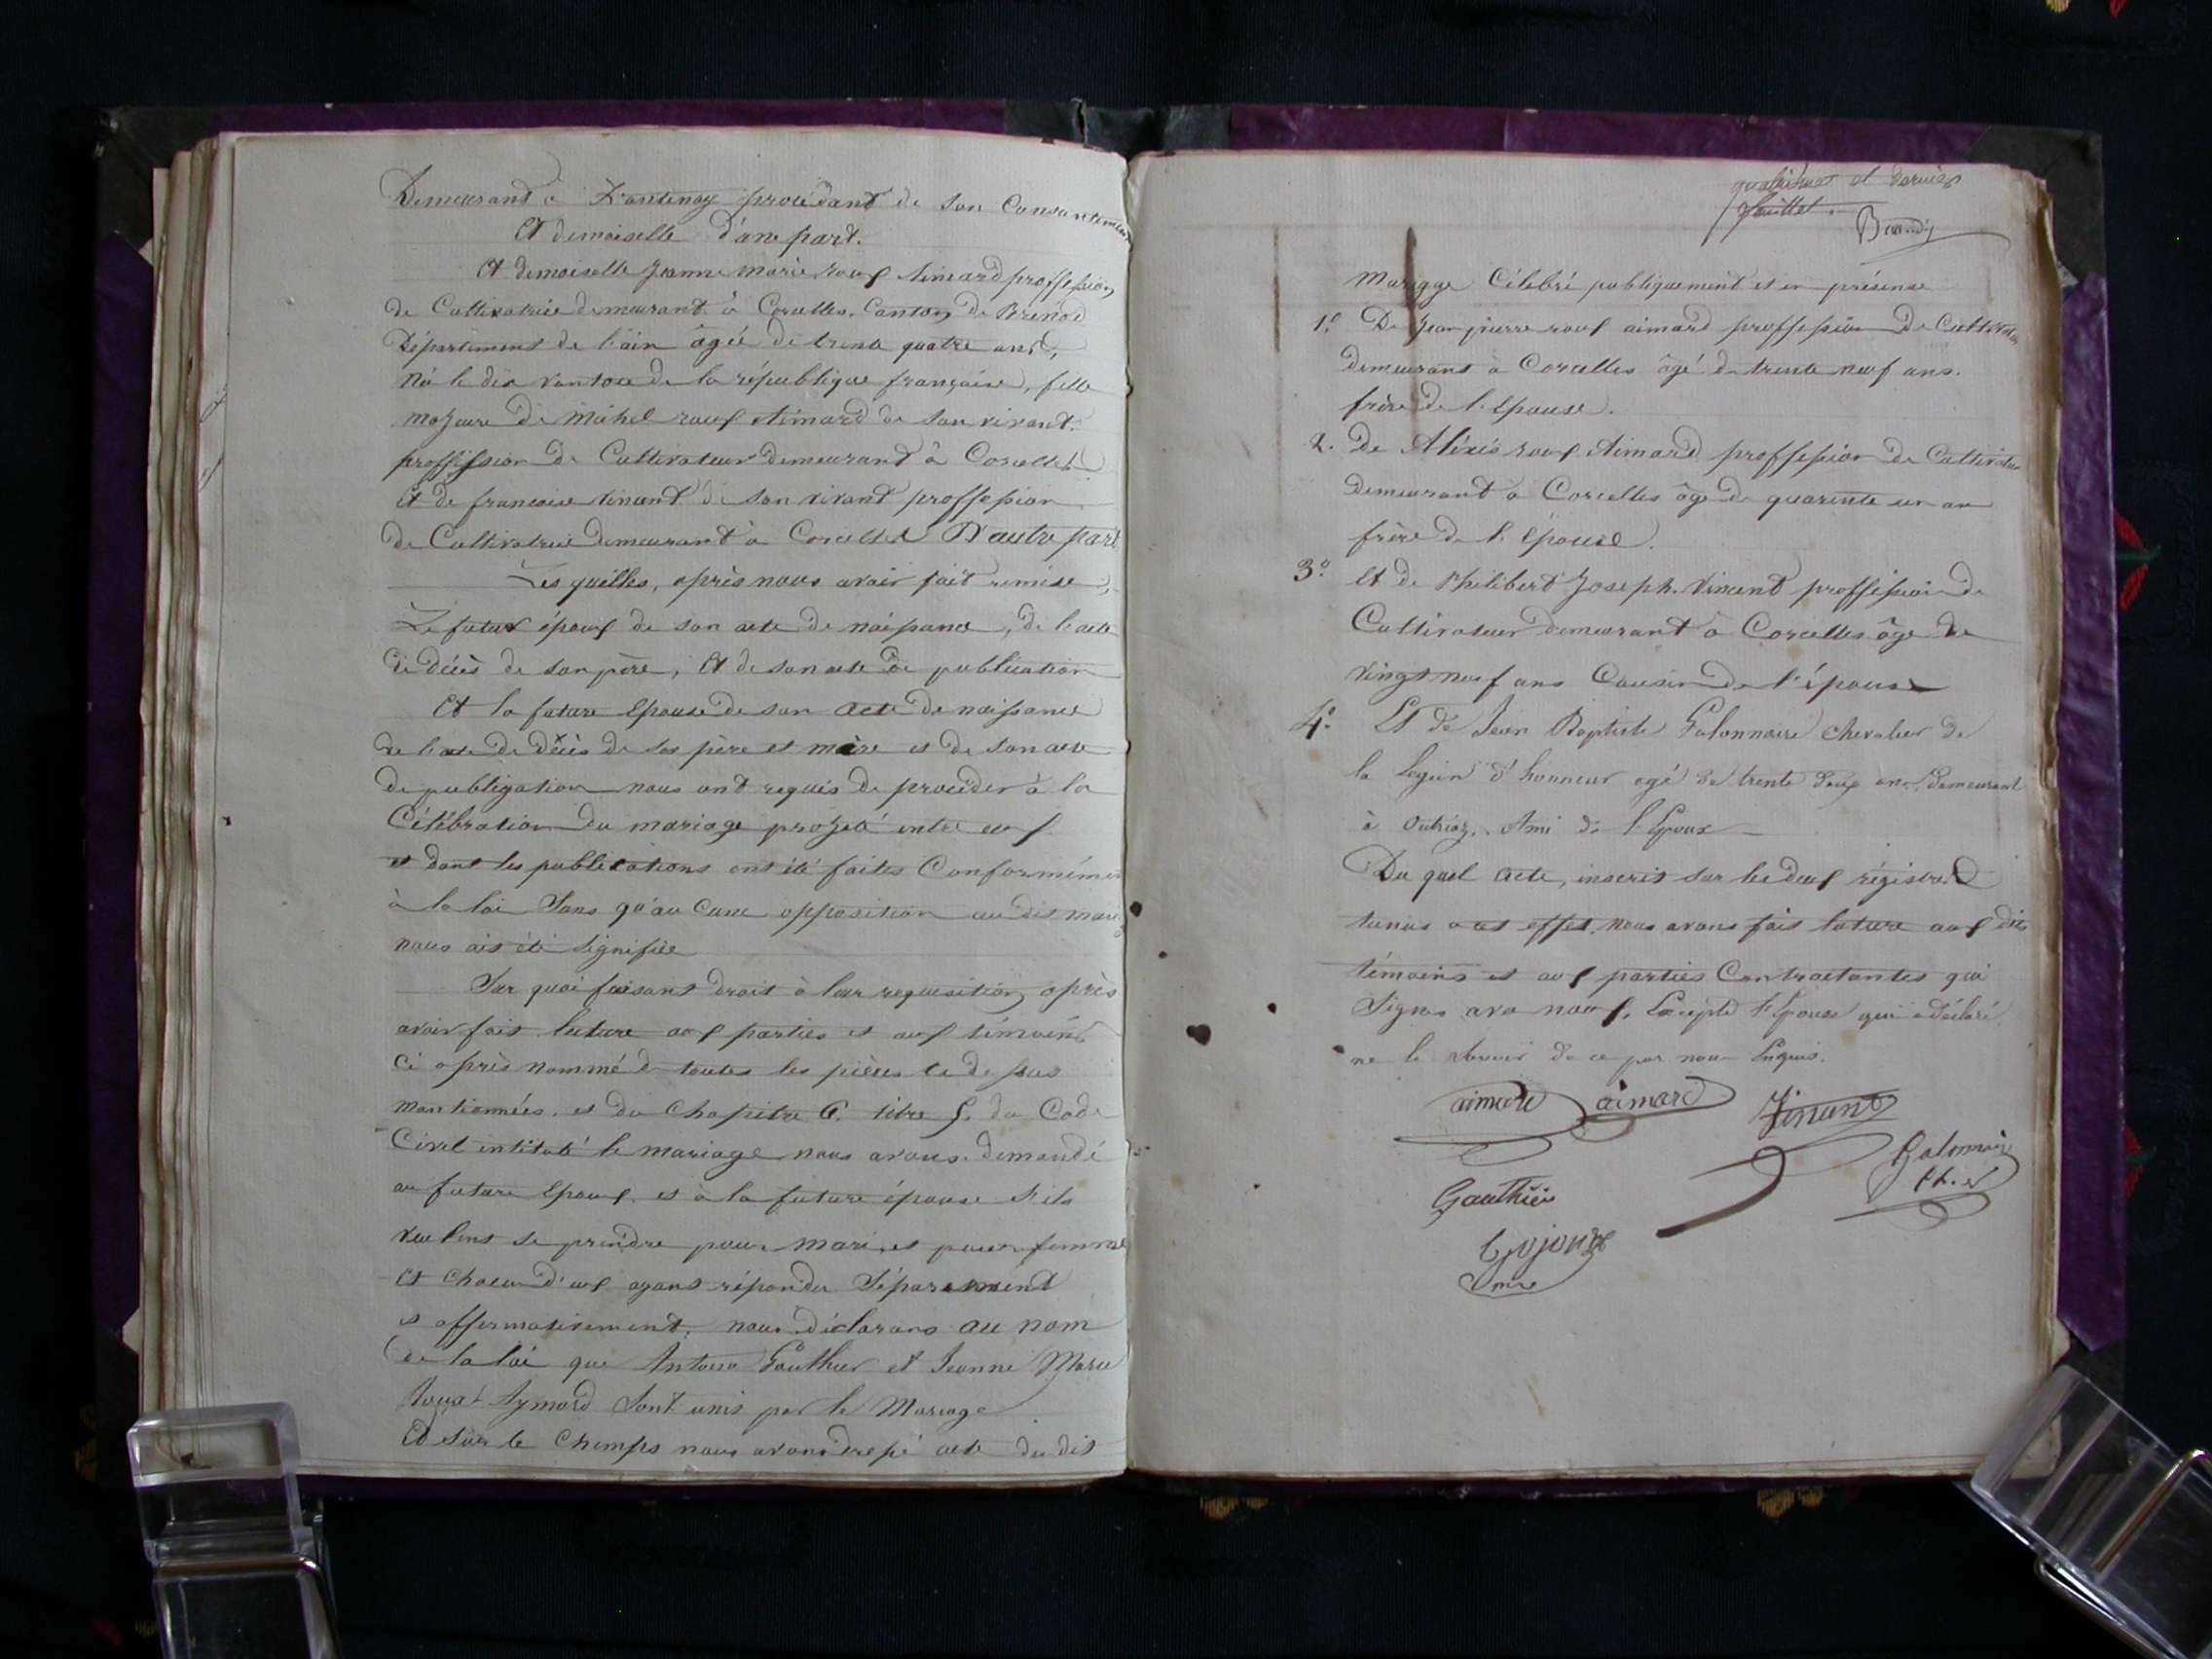 Demeurand à Lantenay procédant de son Consentement
Et demoiselle d'une part.
Et demoiselle Jeanne marie rouf Aimard proffession
de Cultivatrice demeurant à Corcelles. Canton de Brenod
Département de l'ain âgée de trente quatre ans,
Né le dix vantose de la république française, fille
majeure de Michel rouf Aimard de son vivant.
proffession de Cultivateur demeurand à Corcelles
Et de francoise vincent de son vivant proffession
de Cultivatrice demeurand à Corcelles D'autre part
Les quelles, après nous avoir fait remise,
Le futur épouf de son acte de naissance, de l'acte
de décès de son père, Et de son acte de publication
Et la future Epouse de son acte de naissance
de l'acte de décès de ses père et mère et de son acte
de publigation nous ont requis de procéder à la
Célébration du mariage projeté entre euf
et dont les publications ont été faites Conformémen
à la loi Sans qu'au Cune opposition au dit mariag
nous ait été signifiée
Sur quoi faisant droit à leur requisition, après
avoir fait lecture auf parties et auf témoins
Ci après nommé de toutes les pièces ci de ssus
mentionnées. et du Chapitre 6. titre 5. du Code
Civil intitulé le mariage nous avons demandé
au future Epouf. et à la future épouse s'ils
veulent se prendre pour mari, et pour femme
Et chacun d'euf ayant répondu Séparemment
et affirmativement, nous déclarons au nom
de la loi que Antoine Gauthier et Jeanne Marie
Aymard Sont unis par le Mariage
Et sur le Champs nous avons dressé acte du dit
quatrième et dernier
feuillet.
Mariage Célébré publiquement et en présense
1.° De Jean pierre rouf aimard proffession De Cultivateur
demeurant à Corcelles âgé de trente neuf ans.
frère de l'Epouse.
2. De Aléxis rouf Aimard proffession De Cultivateur
demeurand à Corcelles âge de quarente un an
frère de l'épouse.
3.° Et de Philibert Joseph. Vincent proffession de
Cultivateur demeurant à Corcelles âge de
vingt neuf ans Cousin de l'épouse
4.° Et de Jean Baptiste Galonnaire chevalier de
la legion d'honneur agé de trente deux ans, demeurant
à Outriaz. Ami de l'Epoux
Du quel acte, inscrit sur les deuf régistres
tenus a cet effet, nous avons fait lecture auf dits
témoins et auf parties Contractantes qui
Signes avec nouf. Excepté l'Epouse qui a déclaré
ne le savoir de ce par nous Enquis.
aimard aimard Vincent
Gauthier
maire